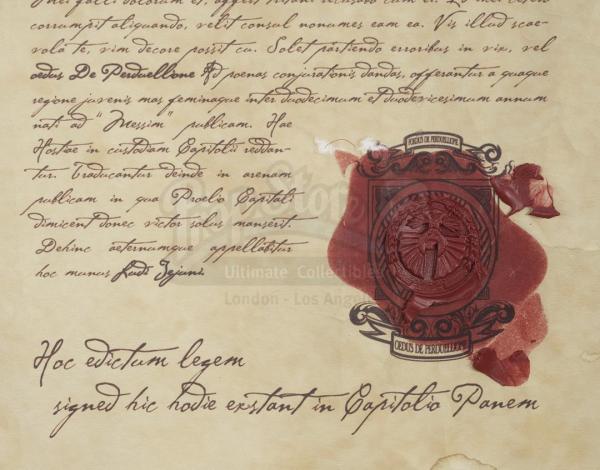 corrumpit aliquando, velit consul nonumes eam ea. Vis illud scae-
vola te, vim decore possit cu. Solet partiendo erroribus in vix, vel
oedus De Perduellione Ad poenas conjurationis dandas, offerantur a quaque
regione juvenis mas feminaque inter duodecimum et duodevicesimum annum
nati ad "Messim" publicam. Hae
Hostiae in custodiam Capitolii reddan-
tur. Traducantur deinde in arenam
publicam in qua Proelio Capitali
dimicent donec victor solus manserit.
Dehinc aeternumque appellabitur
hoc munus Ludi Jejuni
FOEDUS DE PERDUELLIONE
Ultimate Collectibles
London - Los Angeles
OEDUS DE PERDUELLIONE
Hoc edictum legem
signed hic hodie exstant in Capitolio Panem